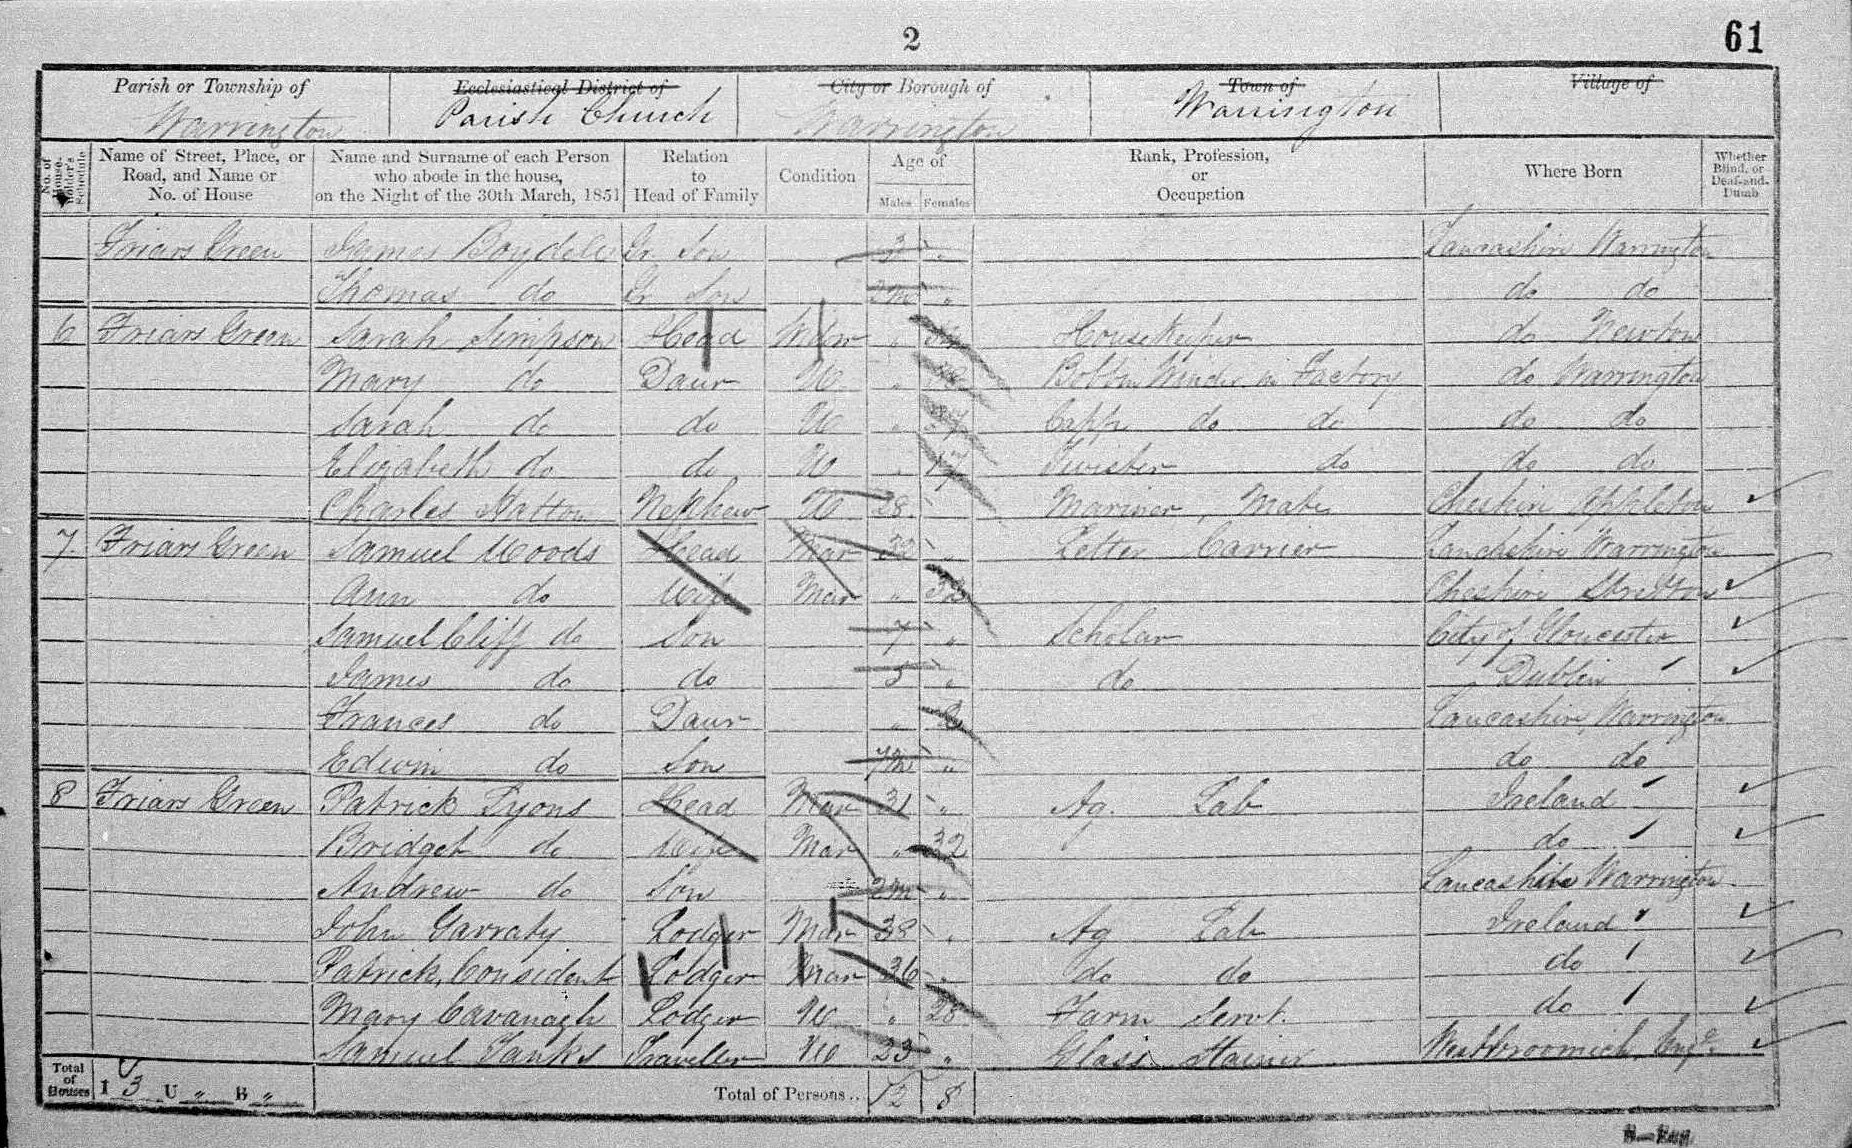 2
61
Parish or Township of
Ecclesiastical District of
City or Borough of
Town of
Village of
Warrington
Parish Church
Warrington
Warrington
No. of House-holder's Schedule
Name of Street, Place, or Road, and Name or No. of House
Name and Surname of each Person who abode in the house, on the Night of the 30th March, 1851
Relation to Head of Family
Condition
Age of
Males
Females
Rank, Profession, or Occupation
Where Born
Whether Blind, or Deaf-and-Dumb
Friars Green James Boydell Gr Son 3 " Lancashire Warrington
Thomas do Gr Son " do do
6 Friars Green Sarah Simpson Head Widw " Housekeeper do Newton
Mary do Daur U " Bobbin Winder in Factory do Warrington
Sarah do do U " do do do do
Elizabeth do do U " 17 Twister do do do
Charles Hatton Nephew U 28 Mariner, Mate Cheshire Appleton
7 Friars Green Samuel Woods Head Mar " Letter Carrier Lancashire Warrington
Ann do Wife Mar " Cheshire Stretton
Samuel Cliff do Son 7 " Scholar City of Gloucester
James do do 5 " do Dublin
Frances do Daur " Lancashire, Warrington
Edwin do Son 7m " do do
8 Friars Green Patrick Lyons Head Mar 31 " Ag. Lab Ireland
Bridget do Wife Mar " 32 do
Andrew do Son 2m " Lancashire Warrington
John Garraty Lodger Mar 38 " Ag Lab Ireland
Patrick Consident Lodger Mar 36 " do do do
Mary Cavanagh Lodger U " 23 Farm Servt. do
Samuel Traveller U 23 " Glass Stainer Westbroomich, Engd.
Total of Houses I 3 U " B " Total of Persons.. 12 8